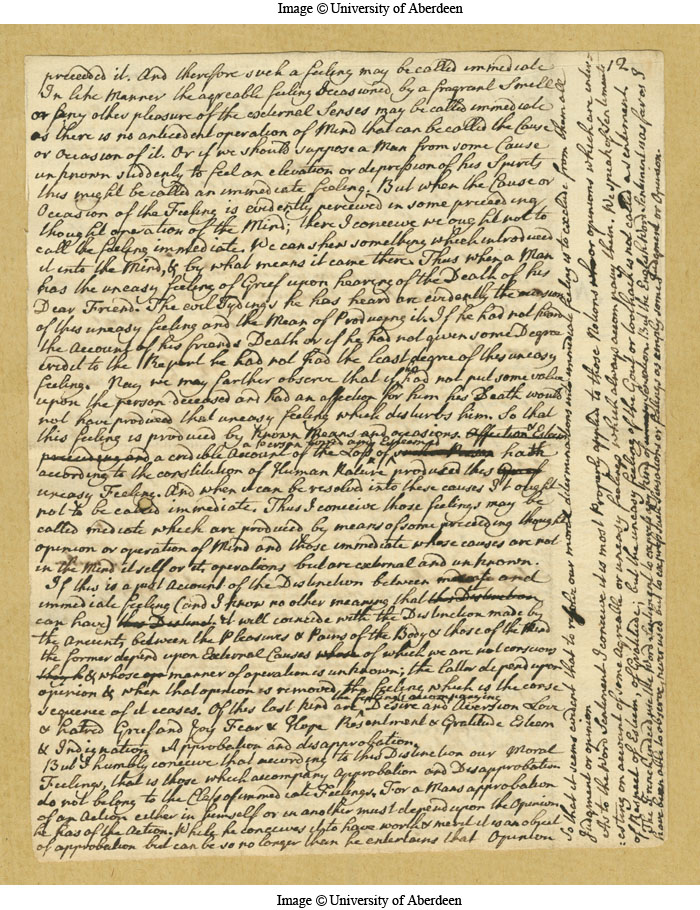 Image © University of Aberdeen
12
preceeded it. And therefore such a feeling may be called immediate
In like Manner the agreable feeling occasioned by a fragrant Smell
or any other pleasure of the external Senses may be called immediate
as there is no antecedent operation of Mind that can be called the Cause
or Occasion of it. Or if we should suppose a Man from some Cause
unknown suddenly to feel an elevation or depression of his Spirits
this might be called an immediate feeling. But when the Cause or
Occasion of the Feeling is evidently perceived in some preceeding
thought operation of the Mind; there I conceive we ought not to
call the feeling immediate. We can shew something which introduced
it into the Mind, & by what means it came there. Thus when a Man
has the uneasy feeling of Grief upon hearing of the Death of his
Dear Friend. The evil Tydings he has heard are evidently the occasion
of this uneasy feeling and the Mean of Producing it. If he had not heard
the Account of his friends Death or if he had not given some Degree
credit to the Report he had not had the least degree of this uneasy
feeling. Nay we may farther observe that if he had not put some value
upon the person deceased and had an affection for him his Death would
not have produced that uneasy feeling which disturbs him. So that
this feeling is produced by Known Means and occasions. Affection & Esteem
a person loved and Esteemed
preceeding and a credible Account of the Loss of hath
according to the constitution of Human Nature produced this Grief
uneasy Feeling. And when it can be resolved into these causes It ought
not to be called immediate. Thus I conceive those feelings may be
called mediate which are produced by means of some preceeding thought
opinion or operation of Mind and those immediate whose causes are not
in the Mind itself or its operations but are external and unknown.
If this is a just Account of the Distinction between mediate and
immediate feeling (and I know no other meaning that this Distinction
can have) this Distinct; it will coincide with the Distinction made by
the Ancients between the Pleasures & Pains of the Body & those of the Mind
the former depend upon External Causes whose of which we are not conscious
& whose manner of operation is unknown; the latter depend upon
opinion & when that opinion is removed the feeling which is the conse
sequence of it ceases. Of this last kind are Desire and Aversion Love
& hatred Grief and Joy Fear & Hope Resentment & Gratitude Esteem
& Indignation Approbation and disapprobation.
But I humbly conceive that according to this Distinction our Moral
Feelings that is those which accompany Approbation and Disapprobation
do not belong to the Class of immediate Feelings. For a Mans approbation
of an Action either in himself or in another must depend upon the Opinion
he has of the Action. While he conceives it to have worth & merit it is an object
of approbation but can be so no longer than he entertains that Opinion
So that it seems evident that to resolve our moral determinations into immediate feeling is to exclude from them all
Judgment or opinion
As to the Word Sentiment I conceive it is most properly applied to those Notions or opinions which are inter=
=esting on account of some agreable or uneasy feelings which always accompany them. We speak of Sentiments
of Respect of Esteem, of Gratitude; but the uneasy feeling of the Gout or toothach is not called a sentiment.
The French indeed use the Word Sentiment to express every kind of sensation. But the English Word Sentiment as far as I
have been able to observe is never used but to express sensations or feelings as imply some Judgment or Opinion.
Image © University of Aberdeen